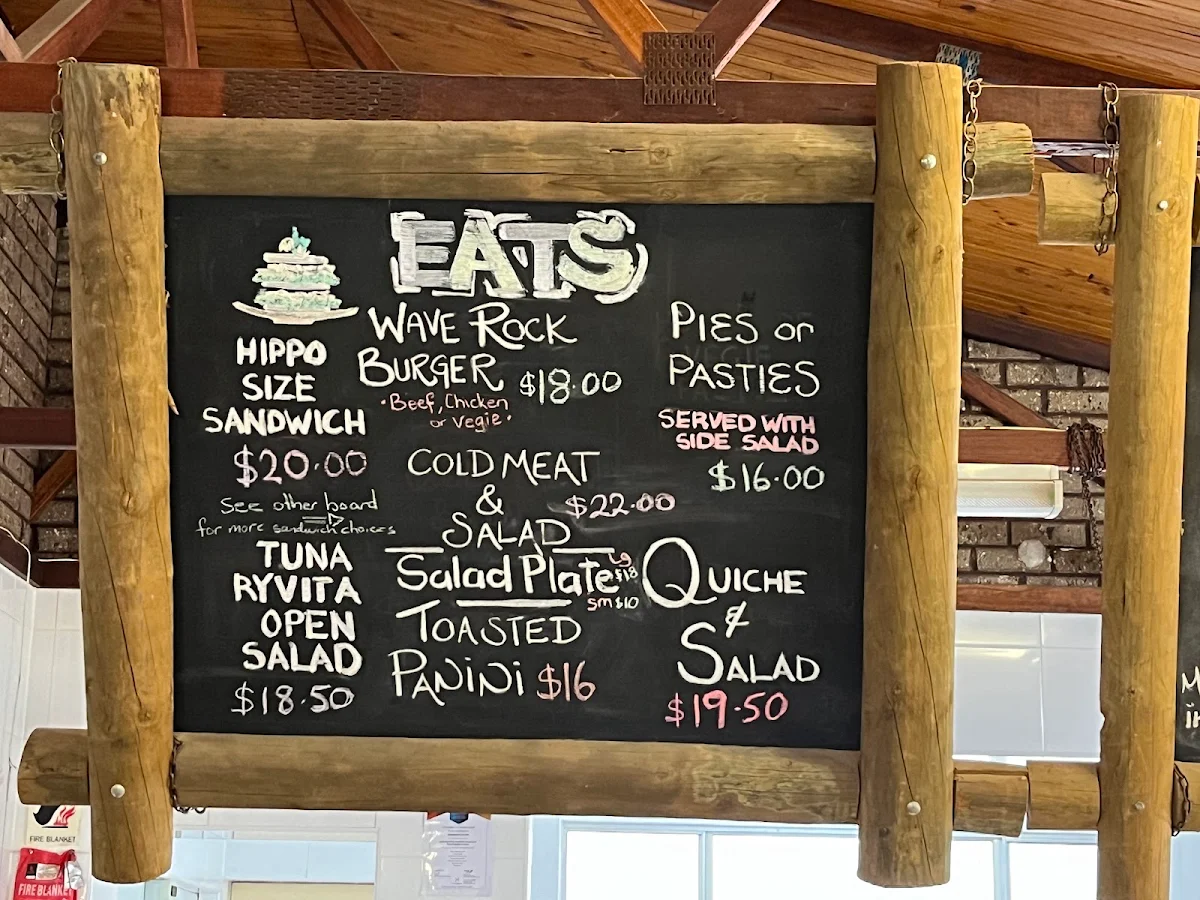 EATS
HIPPO
SIZE
SANDWICH
$20.00
See other board
for more sandwich choices
TUNA
RYVITA
OPEN
SALAD
$18.50
WAVE ROCK
BURGER $18.00
·Beef, Chicken
or Vegie·
COLD MEAT
&
SALAD $22.00
Salad Plate Lg $18
sm $10
TOASTED
PANiNi $16
PIES or
PASTIES
SERVED WITH
SIDE SALAD
$16.00
QUICHE
&
SALAD
$19.50
FIRE BLANKET
FIRE BLANKET